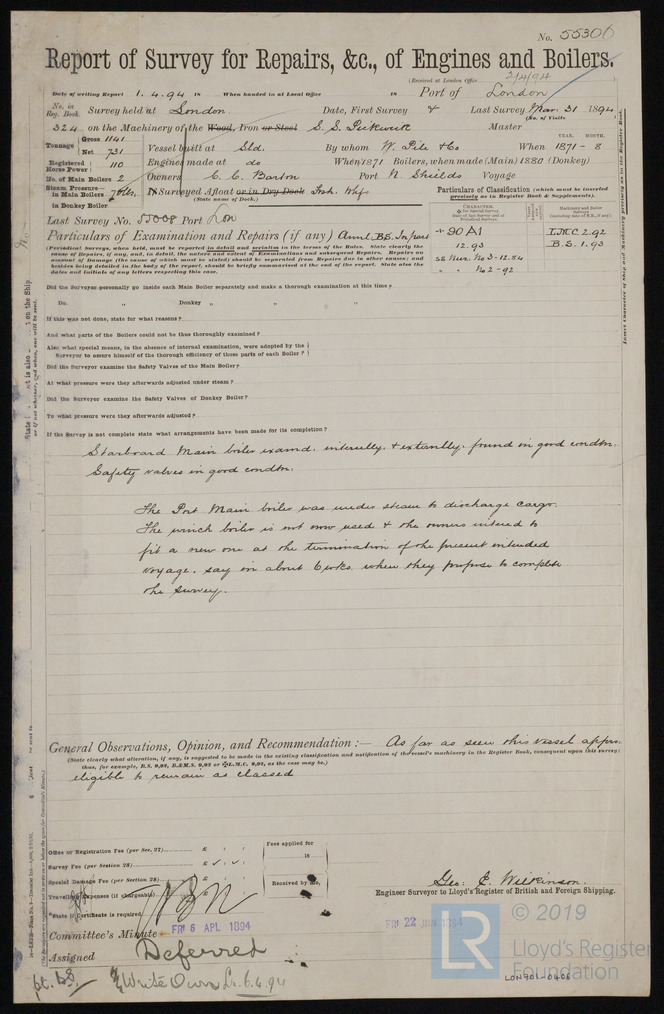 No. 55306
Report of Survey for Repairs, &c., of Engines and Boilers.
(Received at London Office 2/4/94
Date of writing Report 1. 4. 94 When handed in at Local Office 18 Port of London
No. in Reg. Book. Survey held at London Date, First Survey & Last Survey Mar. 31 1894
(No. of Visits
324 on the Machinery of the Wood, Iron or Steel S. S. Pickwick Master
Tonnage Gross 1141 Net 731 Vessel built at Sld. By whom W. Pile & Co When 1871 - 8
YEAR. MONTH.
Registered Horse Power 110 Engines made at do When 1871 Boilers, when made (Main) 1880 (Donkey)
No. of Main Boilers 2 Owners C. C. Barton Port N. Shields Voyage
Steam Pressure in Main Boilers 70 lbs. If Surveyed Afloat or in Dry Dock
(State name of Dock.)
in Donkey Boiler
Particulars of Classification (which must be inserted precisely as in Register Book & Supplements).
Last Survey No. 55008 Port Lon
Particulars of Examination and Repairs (if any) Annl. B.S. In part
+ 90 A1 L.M.C. 2.92
12.93 B.S. 1.93
SS Nwc. No 3-12.84
" " No 2-92
(Periodical Surveys, when held, must be reported in detail and seriatim in the terms of the Rules. State clearly the cause of Repairs, if any, and, in detail, the nature and extent of Examinations and subsequent Repairs. Repairs on account of Damage (the cause of which must be stated) should be separated from Repairs due to other causes; and besides being detailed in the body of the report, should be briefly summarised at the end of the report. State also the dates and initials of any letters respecting this case.
Did the Surveyor personally go inside each Main Boiler separately and make a thorough examination at this time?
Do. " Donkey " " "
If this was not done, state for what reasons?
And what parts of the Boilers could not be thoroughly examined?
Also what special means, in the absence of internal examination, were adopted by the Surveyor to assure himself of the thorough efficiency of those parts of each Boiler?
Did the Surveyor examine the Safety Valves of the Main Boiler?
At what pressure were they afterwards adjusted under steam?
Did the Surveyor examine the Safety Valves of Donkey Boiler?
To what pressure were they afterwards adjusted?
If the Survey is not complete state what arrangements have been made for its completion?
Starboard Main boiler examd. internally, & externally, found in good condtn.
Safety valves in good condtn.
The Port Main boiler was under steam to discharge cargo.
The winch boiler is not now used & the owners intend to
fit a new one at the termination of the present intended
voyage, say in about 6 wks. when they propose to complete
the survey.
General Observations, Opinion, and Recommendation:— As far as seen this vessel appears
(State clearly what alteration, if any, is suggested to be made in the existing classification and notification of the vessel's machinery in the Register Book, consequent upon this survey: thus, for example, B.S. 9,92, B.&M.S. 9,92 or L.M.C. 9,92, as the case may be.)
eligible to remain as classed
Office or Registration Fee (per Sec. 27) £ : :
Survey Fee (per Section 28) £
Special Damage Fee (per Section 28) £
Travelling Expenses (if chargeable) £
Fees applied for
18
Received by me,
State if Certificate is required
Geo. E. Wilkinson.
Engineer Surveyor to Lloyd's Register of British and Foreign Shipping.
Committee's Minute FRI 6 APL 1894 FRI 22 JUN 1894
Assigned Deferred
Write Own Lr. 6.4.94
© 2019
LR
Lloyd's Register
Foundation
LON901-0406